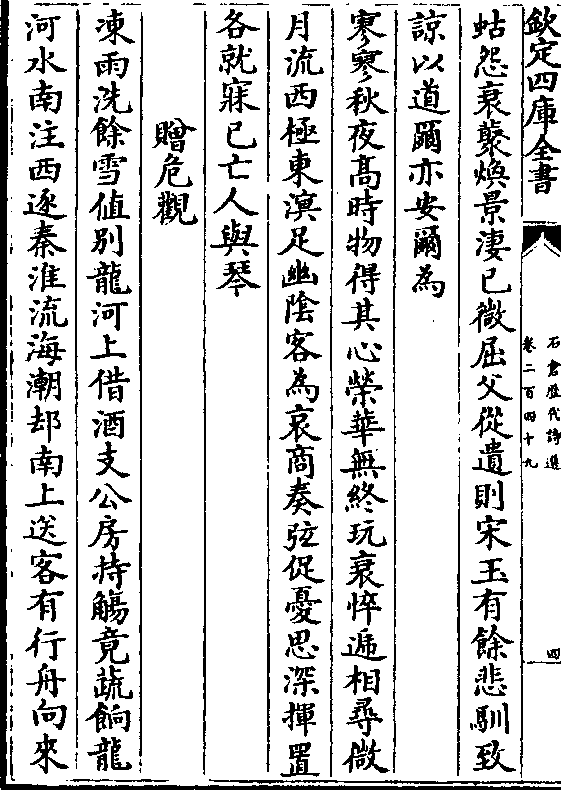 欽定四庫全書
石倉歷代詩選
卷二百四十九
四
蛄怨衰褧煥景淒已微屈父從遺則宋玉有餘悲馴致
諒以道爾亦安爾為
寥寥秋夜髙時物得其心榮華無終玩衰悴遞相尋微
月流西極東溟足幽陰客為哀商奏弦促憂思深揮置
各就寐已亡人與琴
贈危觀
凍雨洗餘雪值別龍河上借酒支公房持觴竟蔬餉龍
河水南注西逐秦淮流海潮却南上送客有行舟向來